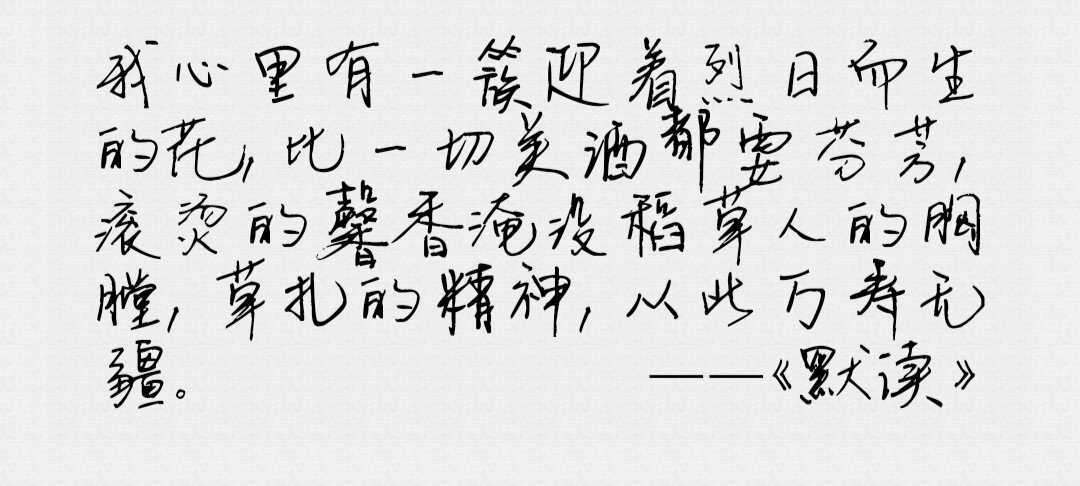 我心里有一簇迎着烈日而生
的花,比一切美酒都要芬芳,
滚烫的馨香淹没稻草人的胸
膛,草扎的精神,从此万寿无
疆。
——《默读》